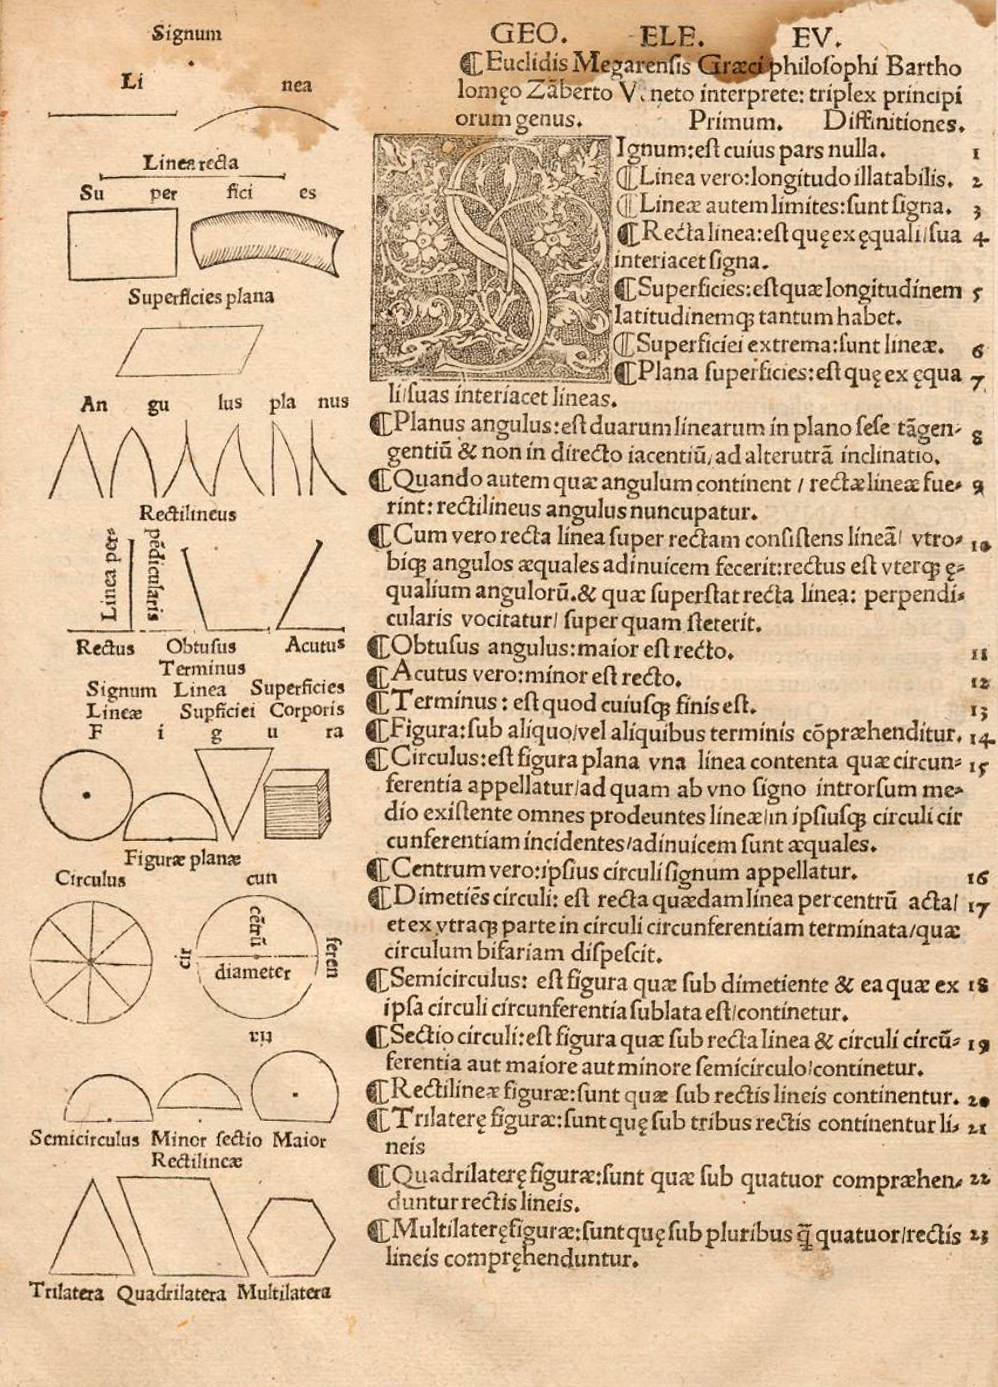 Signum
Li nea
Linea recta
Su per fici es
Superficies plana
An gu lus pla nus
Rectilineus
Linea per-
pēdicularis
Rectus Obtusus Acutus
Terminus
Signum Linea Superficies
Lineæ Supficiei Corporis
F i g u ra
Figuræ planæ
Circulus cun
cir
cētrū
diameter
feren
tia
Semicirculus Minor sectio Maior
Rectilineæ
Trilatera Quadrilatera Multilatera
GEO. ELE. EV.
¶Euclidis Megarensis Græci philosophi Bartho
lomęo Zāberto Veneto interprete: triplex principi
orum genus. Primum. Diffinitiones.
SIgnum:est cuius pars nulla. 1
¶Linea vero:longitudo illatabilis. 2
¶Lineæ autem limites:sunt signa. 3
¶Recta linea:est quę ex ęquali/sua 4
interiacet signa.
¶Superficies:est quæ longitudinem 5
latitudinemqꝫ tantum habet.
¶Superficiei extrema:sunt lineæ. 6
¶Plana superficies:est quę ex ęqua 7
li/suas interiacet lineas.
¶Planus angulus:est duarum linearum in plano sese tāgen- 8
gentiū & non in directo iacentiū/ad alterutrā inclinatio.
¶Quando autem quæ angulum continent / rectæ lineæ fue- 9
rint: rectilineus angulus nuncupatur.
¶Cum vero recta linea super rectam consistens lineā/ vtro- 10
biqꝫ angulos æquales adinuicem fecerit:rectus est vterqꝫ ę-
qualium angulorū.& quæ superstat recta linea: perpendi-
cularis vocitatur/ super quam steterit.
¶Obtusus angulus:maior est recto. 11
¶Acutus vero:minor est recto. 12
¶Terminus: est quod cuiusqꝫ finis est. 13
¶Figura:sub aliquo/vel aliquibus terminis cōpræhenditur. 14
¶Circulus:est figura plana vna linea contenta quæ circun- 15
ferentia appellatur/ad quam ab vno signo introrsum me-
dio existente omnes prodeuntes lineæ/in ipsiusqꝫ circuli cir
cunferentiam incidentes/adinuicem sunt æquales.
¶Centrum vero:ipsius circuli signum appellatur. 16
¶Dimetiēs circuli: est recta quædam linea per centrū acta/ 17
et ex vtraqꝫ parte in circuli circunferentiam terminata/quæ
circulum bifariam dispescit.
¶Semicirculus: est figura quæ sub dimetiente & ea quæ ex 18
ipsa circuli circunferentia sublata est/continetur.
¶Sectio circuli:est figura quæ sub recta linea & circuli circū- 19
ferentia aut maiore aut minore semicirculo/continetur.
¶Rectilineæ figuræ:sunt quæ sub rectis lineis continentur. 20
¶Trilaterę figuræ:sunt quę sub tribus rectis continentur li- 21
neis
¶Quadrilaterę figuræ:sunt quæ sub quatuor compræhen- 22
duntur rectis lineis.
¶Multilaterę figuræ:sunt quę sub pluribus q̄ quatuor/rectis 23
lineis compręhenduntur.